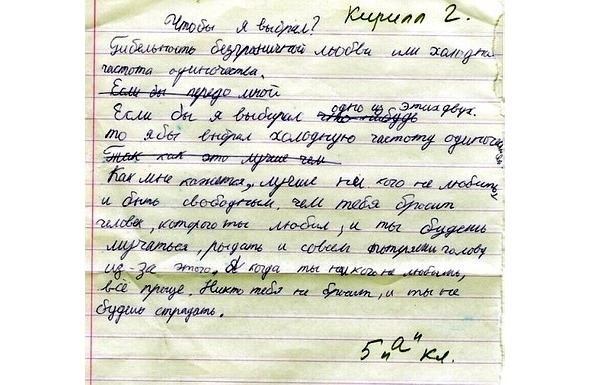 Чтобы я выбрал? Кирилл Г.
Гибельность безграничной любви или холодная
частота одиночества.
Если бы передо мной
Если бы я выбирал что-нибудь одно из этих двух.
то я бы выбрал холодную частоту одиночества
Так как это лучше чем
Как мне кажется, лучше ни кого не любить
и быть свободным, чем тебя бросит
человек, которого ты любил, и ты будешь
мучаться, рыдать и совсем потеряеш голову
из-за этого. А когда ты никого не любишь,
всё проще. Никто тебя не бросит, и ты не
будешь страдать.
5 "а" кл.